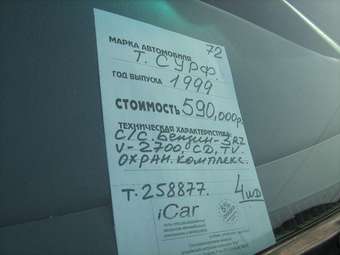 72
МАРКА АВТОМОБИЛЯ
Т. СУРФ
ГОД ВЫПУСКА 1999
СТОИМОСТЬ 590,000р.
ТЕХНИЧЕСКАЯ ХАРАКТЕРИСТИКА
С/С. Бензин-3RZ
V-2700, CD, TV
ОХРАН. КОМПЛЕКС.
Т. 258877. 4WD
iCar